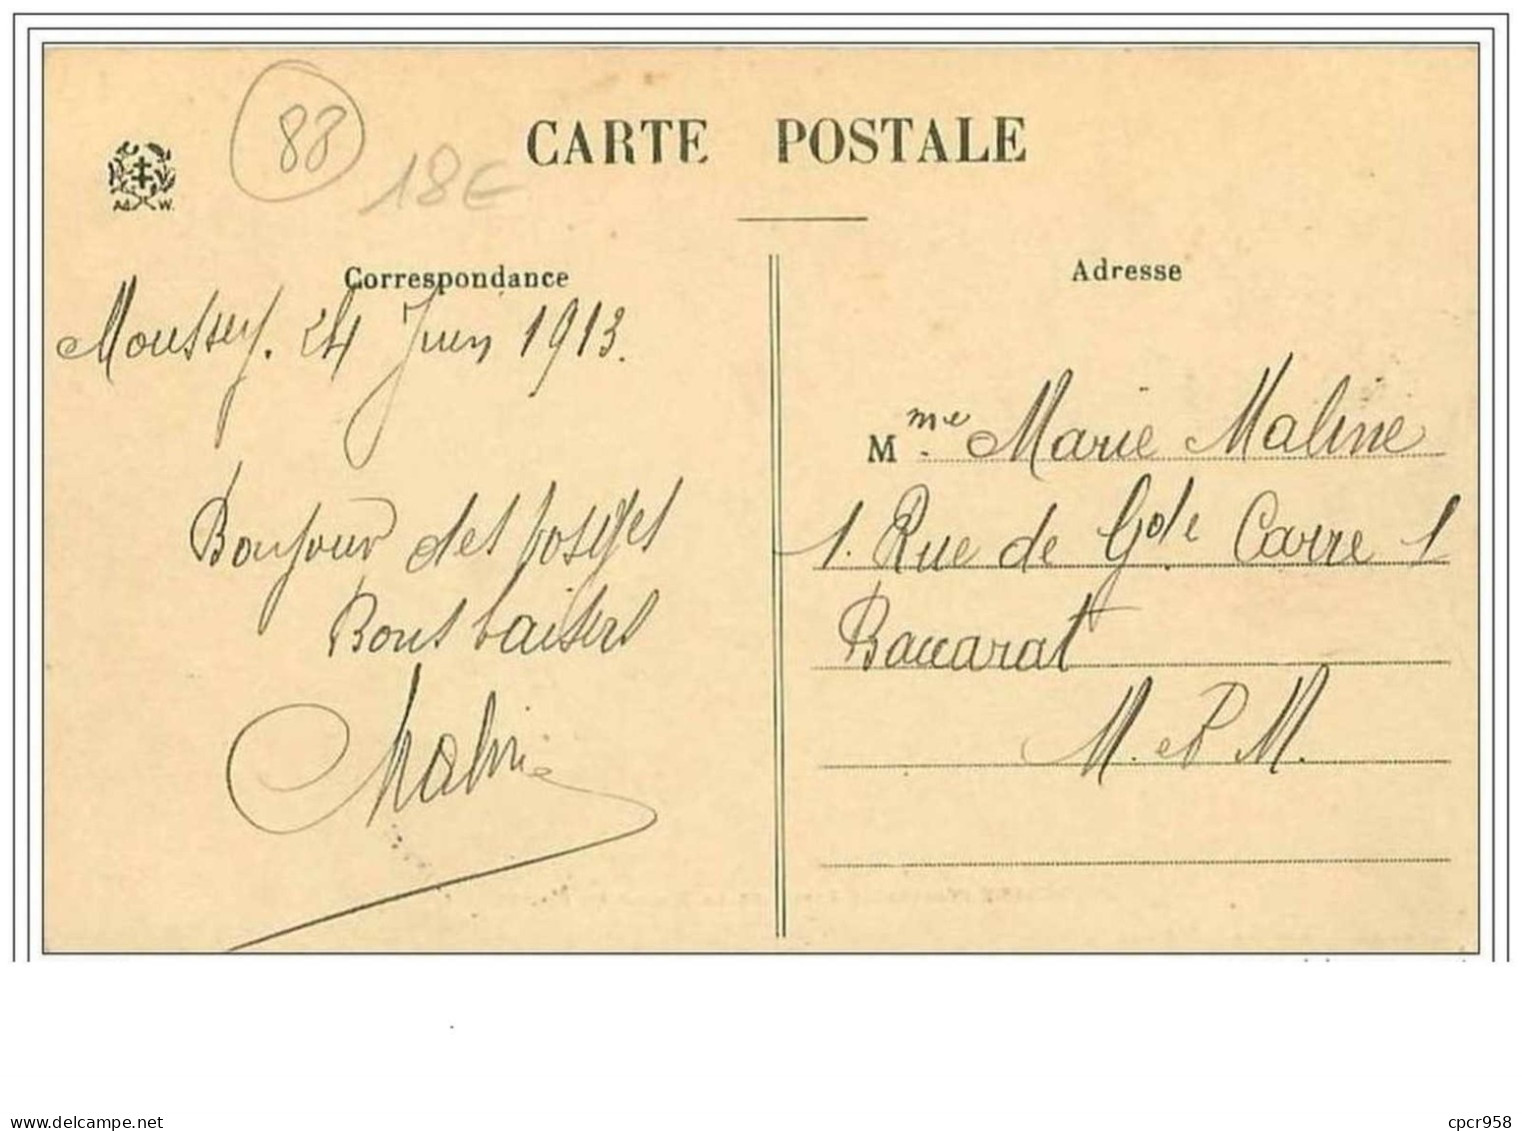 88
18€
CARTE POSTALE
Ad. W.
Correspondance
Moussey. 24 Juin 1913.
Bonjour des Vosges
Bons baisers
Maline
Adresse
Mme. Marie Maline
1. Rue de Gde Carre 1
Baccarat
M. et M.
delcampe.net
cpcr958